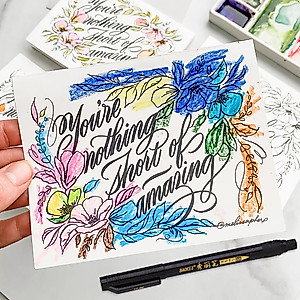 You're
nothing
short of
amazing
You're
nothing
short of
amazing